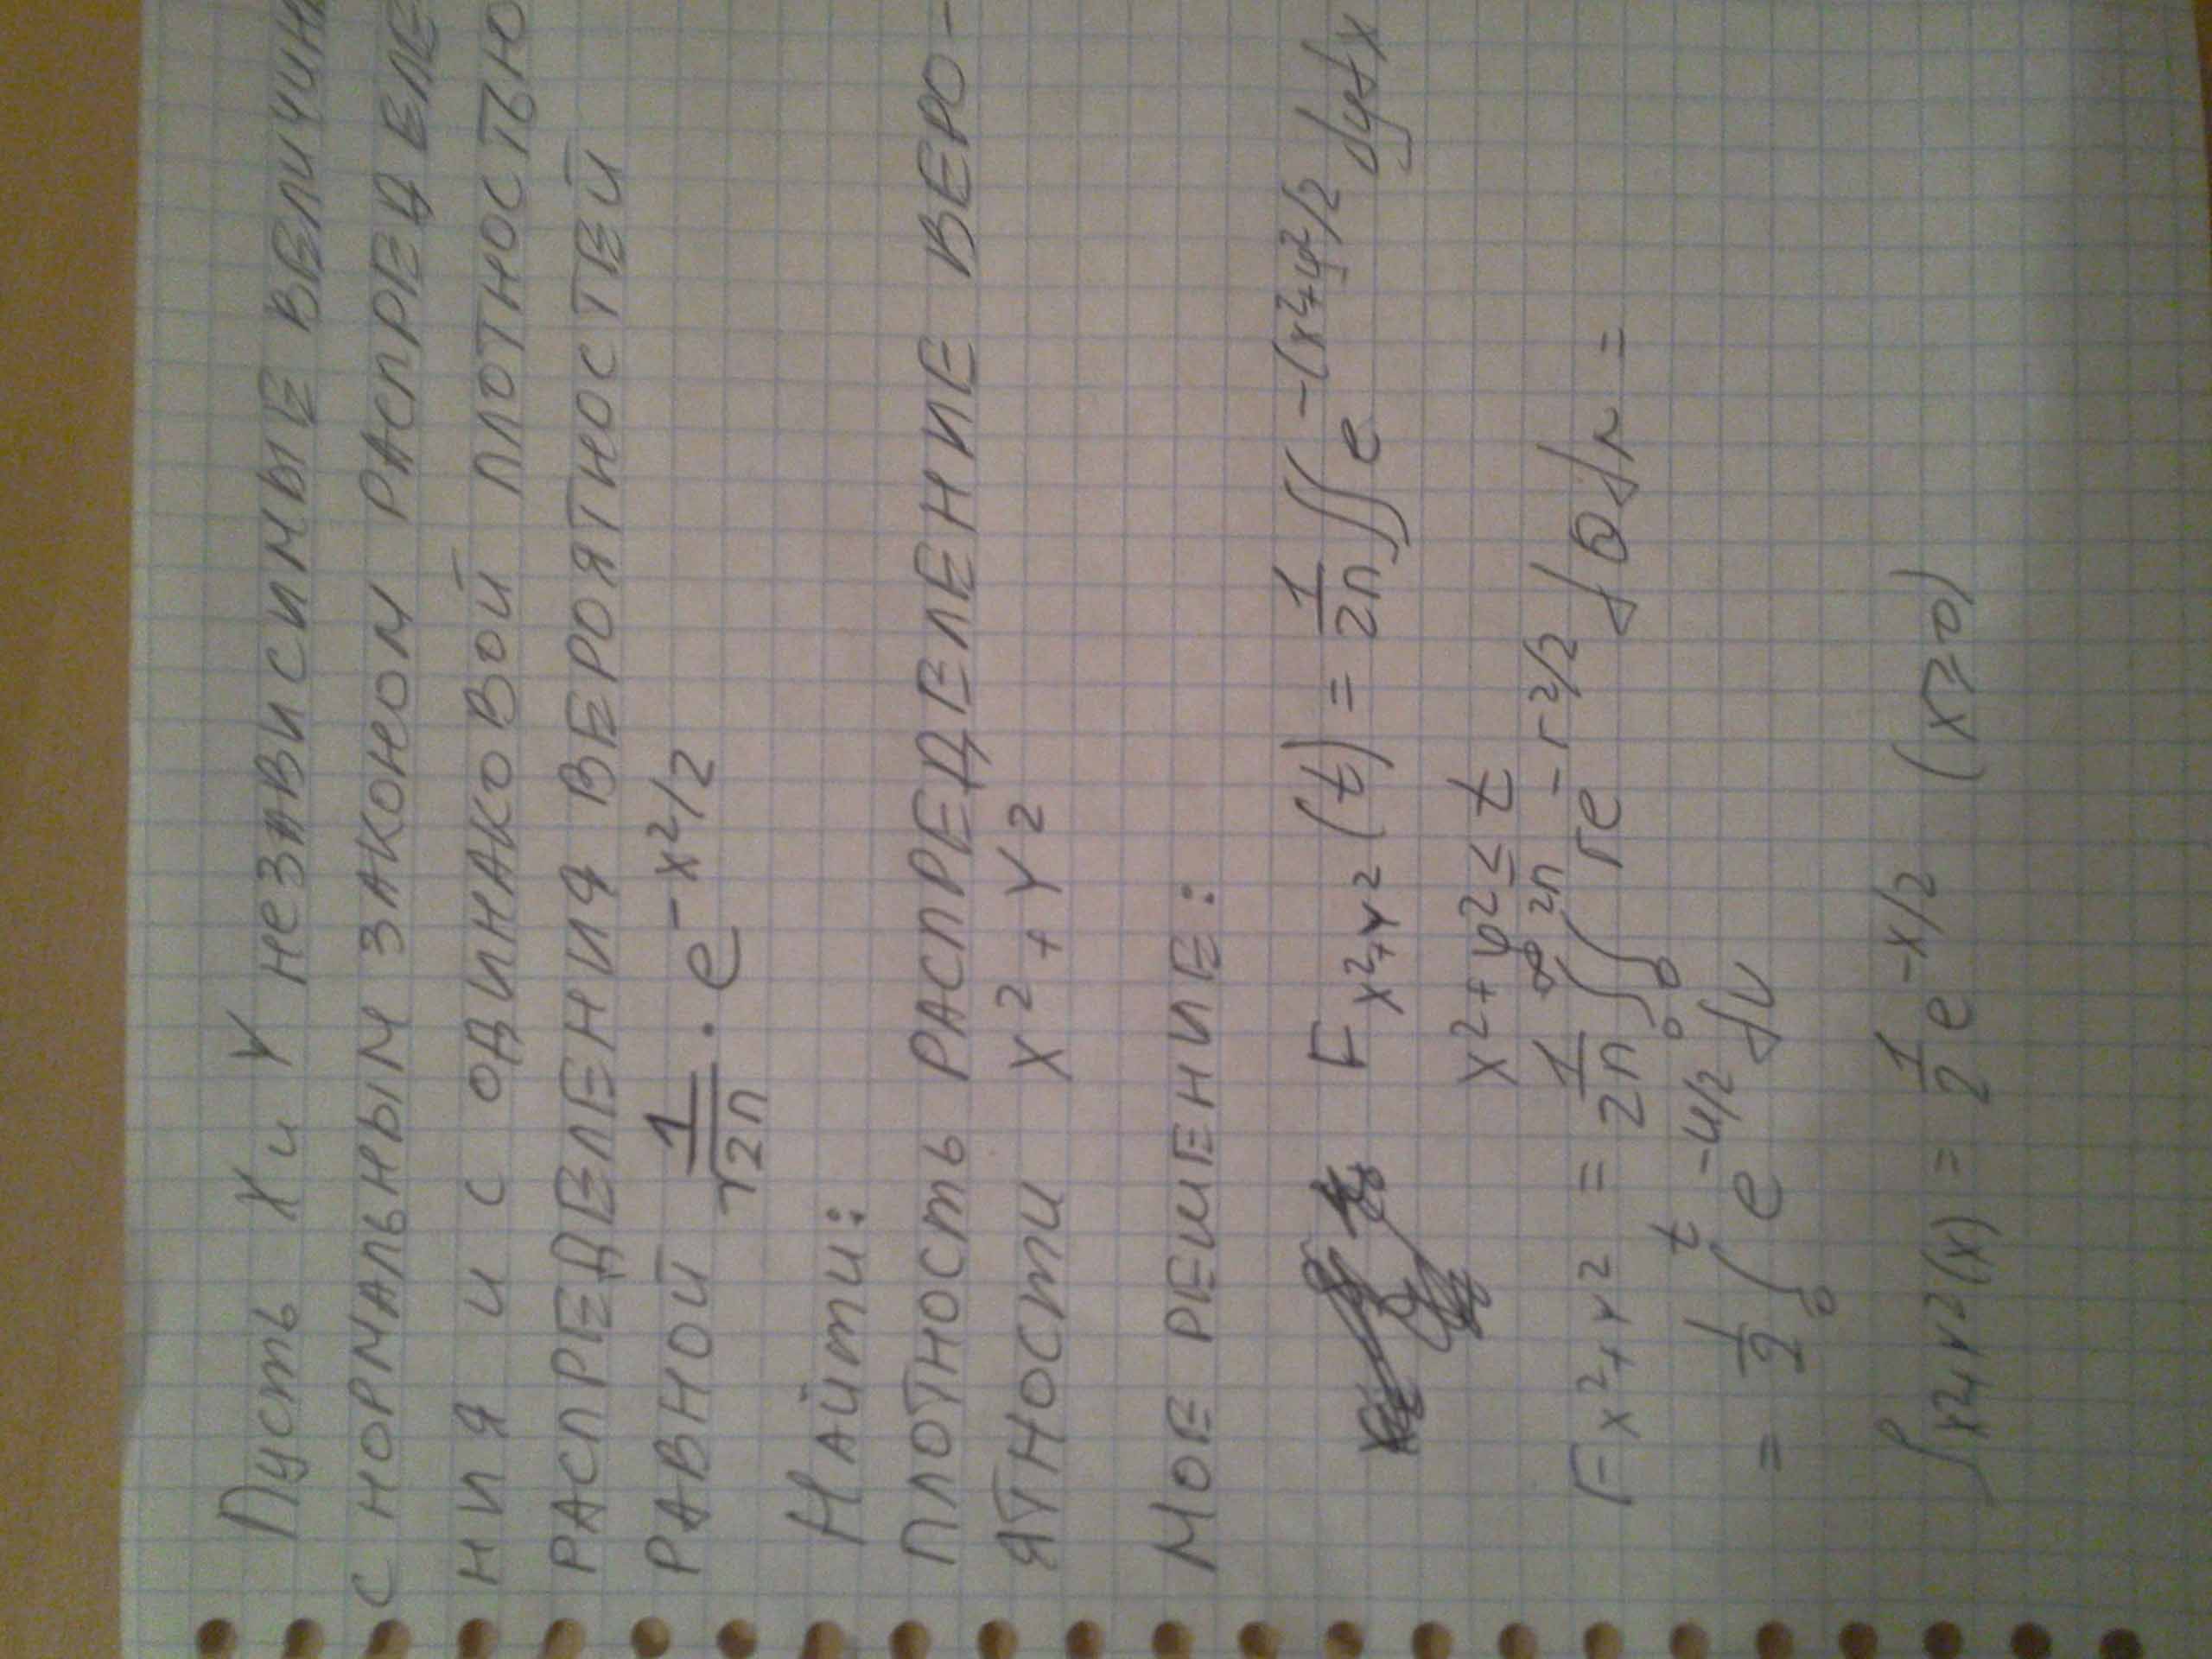 Пусть X и Y независимые величин
с нормальным законом распределе
ния и с одинаковой плотностью
распредвления вероятностей
равной 1/√2п · e^-x²/2
Найти:
плотность распредвление веро-
ятности X² + Y²
Мое решение:
F x²+y² (t) = 1/2п ∬ e^-(x²+y²)/2 dydx
x²+y² ≤ t
F x²+y² = 1/2п ∫₀^∞ ∫₀^2п re^-r²/2 dθ dr =
= 1/2 ∫₀^t e^-u/2 du
f x²+y² (x) = 1/2 e^-x/2 (x≥0)